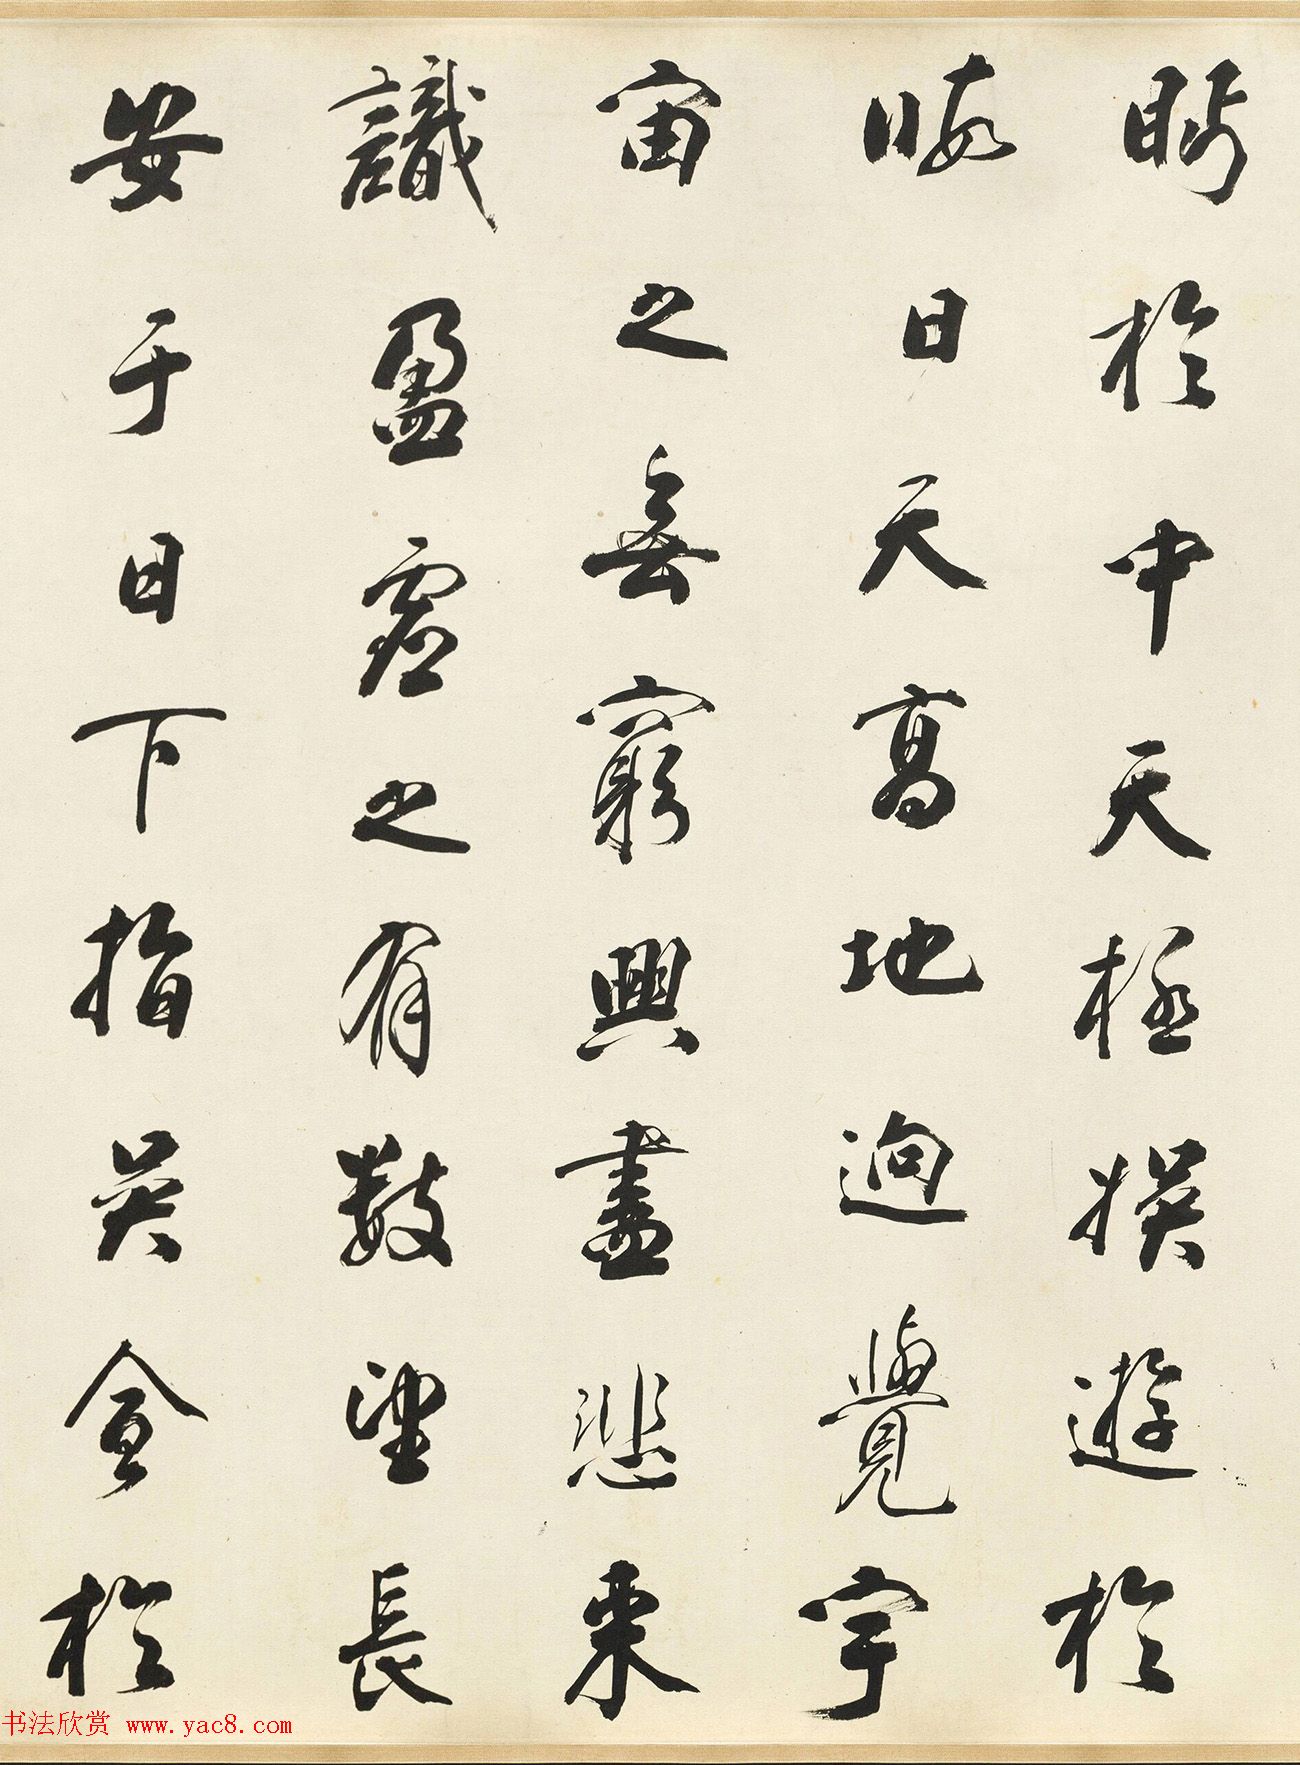 眄於中天極娛遊於
晦日天高地迥覺宇
宙之無窮興盡悲來
識盈虛之有數望長
安于日下指吴會於
书法欣赏 www.yac8.com